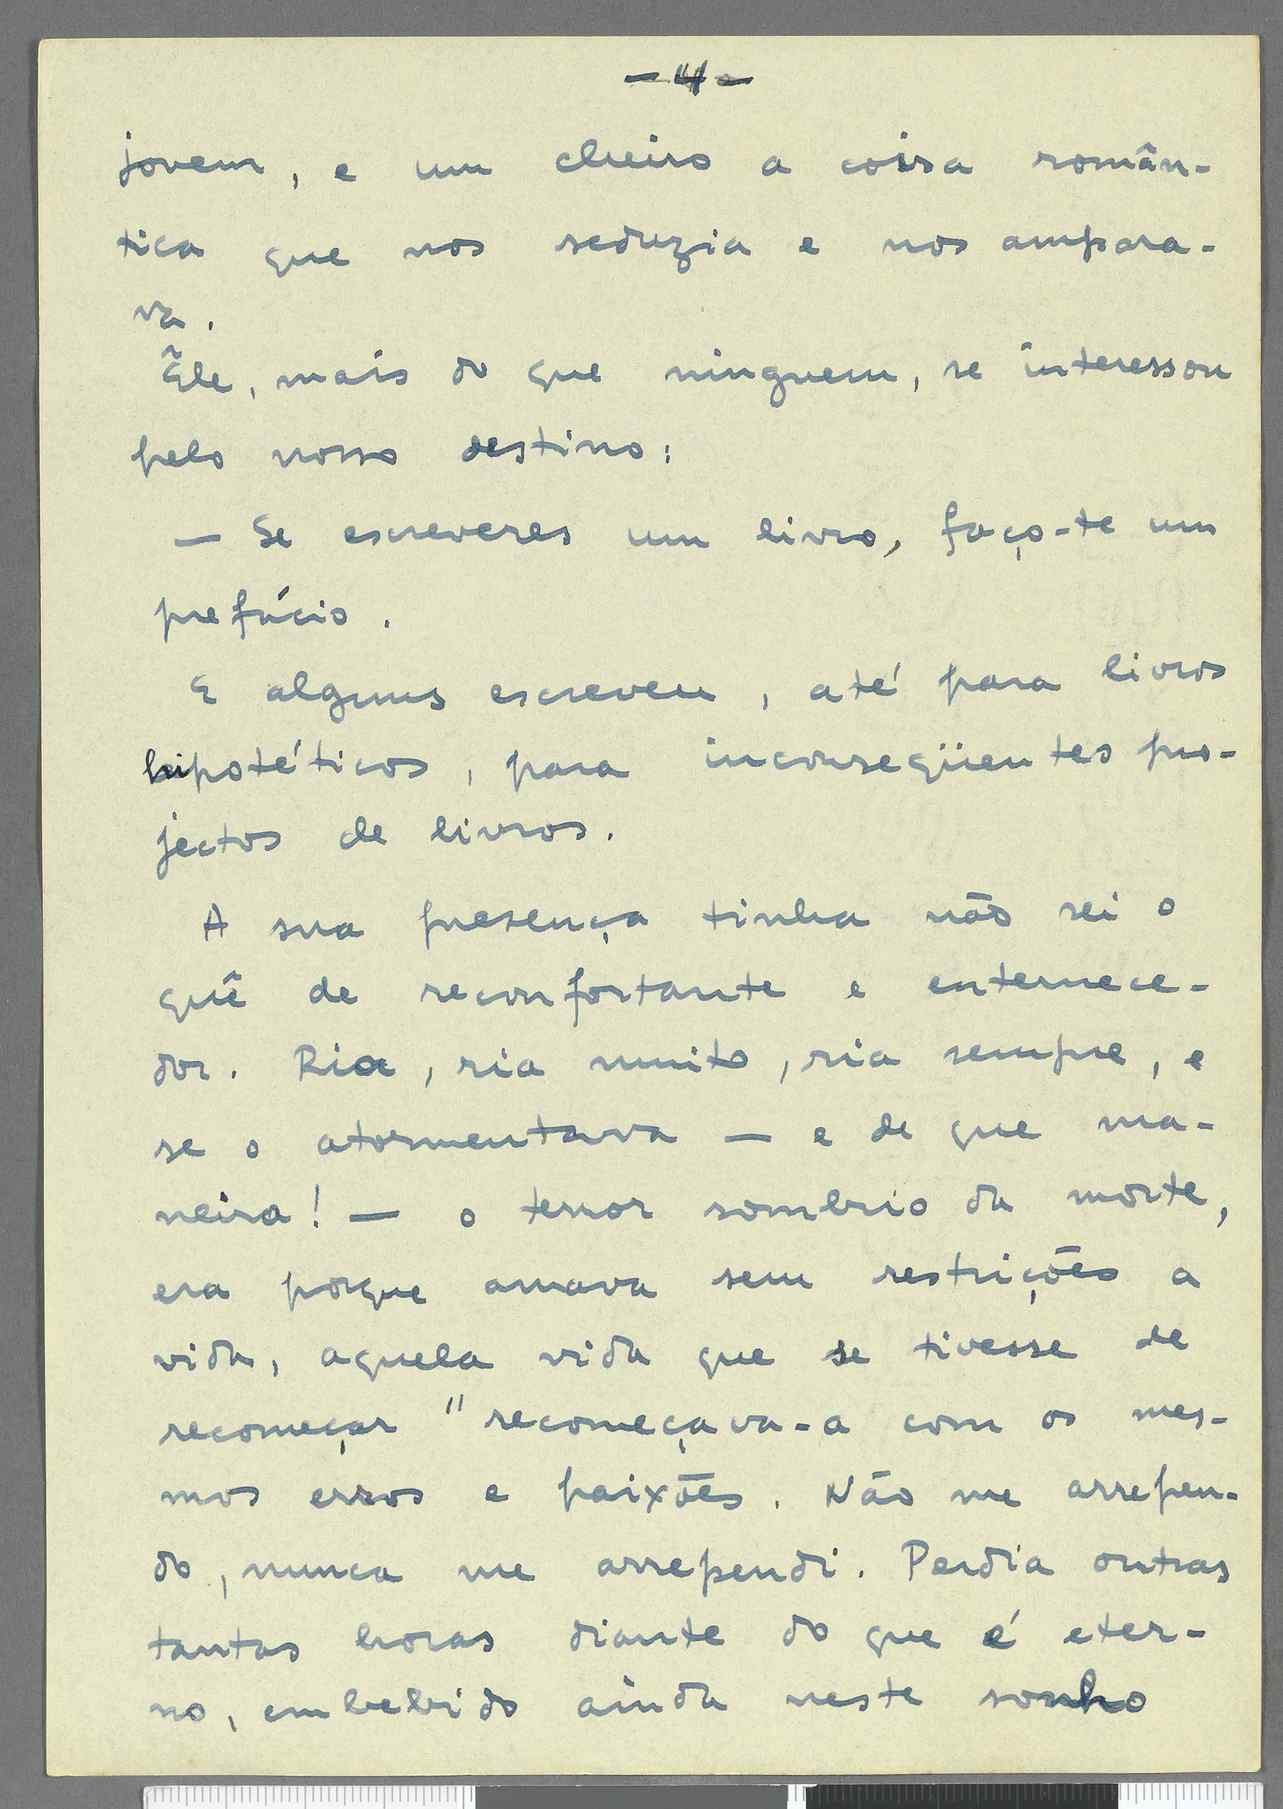 - 4 -
jovem, e um cheiro a coisa român-
tica que nos seduzia e nos ampara-
va.
Êle, mais do que ninguem, se interessou
pelo nosso destino:
— Se escreveres um livro, faço-te um
prefácio.
E alguns escreveu, até para livros
hipotéticos, para inconseqüentes pro-
jectos de livros.
A sua presença tinha não sei o
quê de reconfortante e enternece-
dor. Ria, ria muito, ria sempre, e
se o atormentava — e de que ma-
neira! — o terror sombrio da morte,
era porque amava sem restrições a
vida, aquela vida que se tivesse de
recomeçar "recomeçava-a com os mes-
mos erros e paixões. Não me arrepen-
do, nunca me arrependi. Perdia outras
tantas horas diante do que é eter-
no, embebido ainda neste sonho